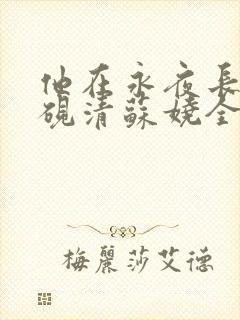 他在永夜長
硯清蘇嬈全
梅麗莎艾德